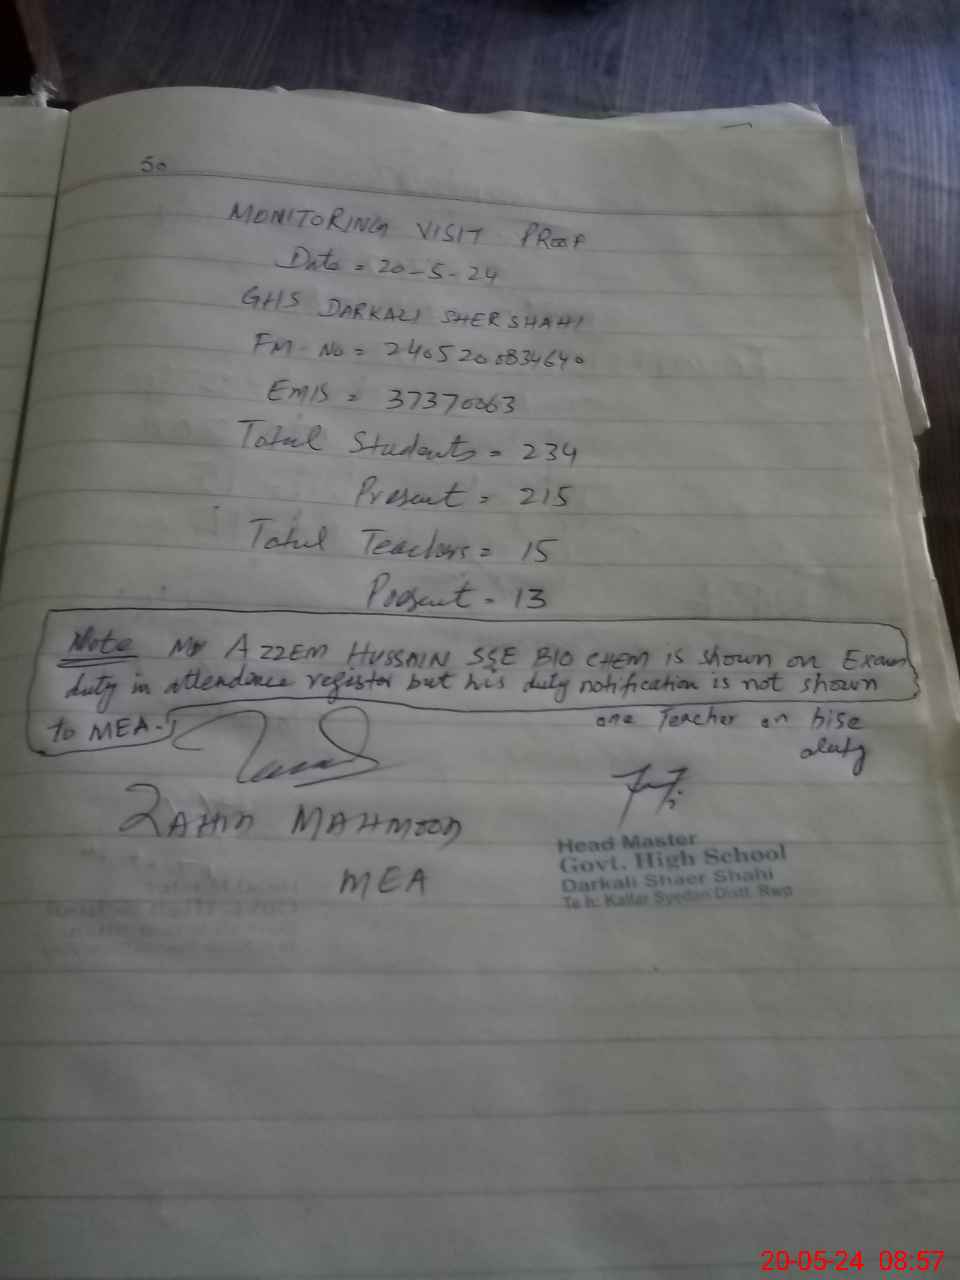 50
MONITORING VISIT PROOF
Date = 20-5-24
GHS DARKALI SHER SHAHI
FM-No = 2405200834640
EMIS = 37370063
Total Students = 234
Present = 215
Total Teachers = 15
Present - 13
Note Mr AZZEM HUSSAIN SSE BIO CHEM is shown on Exam
duty in attendence regester but his duty notification is not shown
to MEA-
one Teacher on bise
duty
ZAHID MAHMOOD
MEA
Head Master
Govt. High School
Darkali Shaer Shahi
Te h: Kallar Syedan Distt. Rwp
20-05-24 08:57